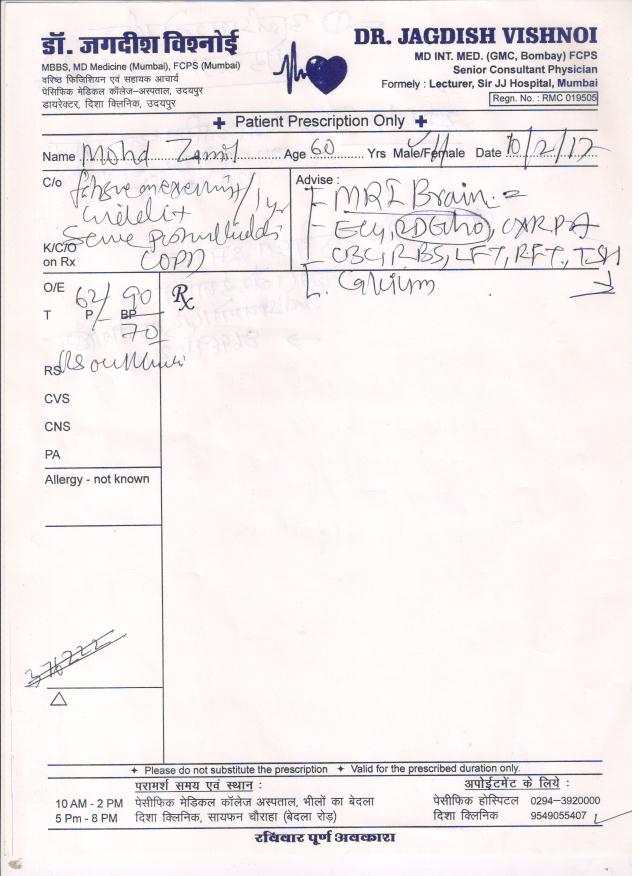 डॉ. जगदीश विश्नोई
MBBS, MD Medicine (Mumbai), FCPS (Mumbai)
वरिष्ठ फिजिशियन एवं सहायक आचार्य
पेसिफिक मेडिकल कॉलेज-अस्पताल, उदयपुर
डायरेक्टर, दिशा क्लिनिक, उदयपुर
DR. JAGDISH VISHNOI
MD INT. MED. (GMC, Bombay) FCPS
Senior Consultant Physician
Formely : Lecturer, Sir JJ Hospital, Mumbai
Regn. No. : RMC 019505
Patient Prescription Only
Name Mohd Zamil Age 60 Yrs Male/Female Date 10/2/17
C/o
/1yr
K/C/O COPD
on Rx
Advise :
MRI Brain
ECG, 2D Echo, CXR PA
CBC, RBS, LFT, RFT, TSH
Calcium
O/E
T P/ 62 BP 90/70
Rx
RS
CVS
CNS
PA
Allergy - not known
376222
Please do not substitute the prescription Valid for the prescribed duration only.
परामर्श समय एवं स्थान : अपोईटमेंट के लिये :
10 AM - 2 PM पेसीफिक मेडिकल कॉलेज अस्पताल, भीलों का बेदला पेसीफिक होस्पिटल 0294-3920000
5 Pm - 8 PM दिशा क्लिनिक, सायफन चौराहा (बेदला रोड़) दिशा क्लिनिक 9549055407
रविवार पूर्ण अवकाश